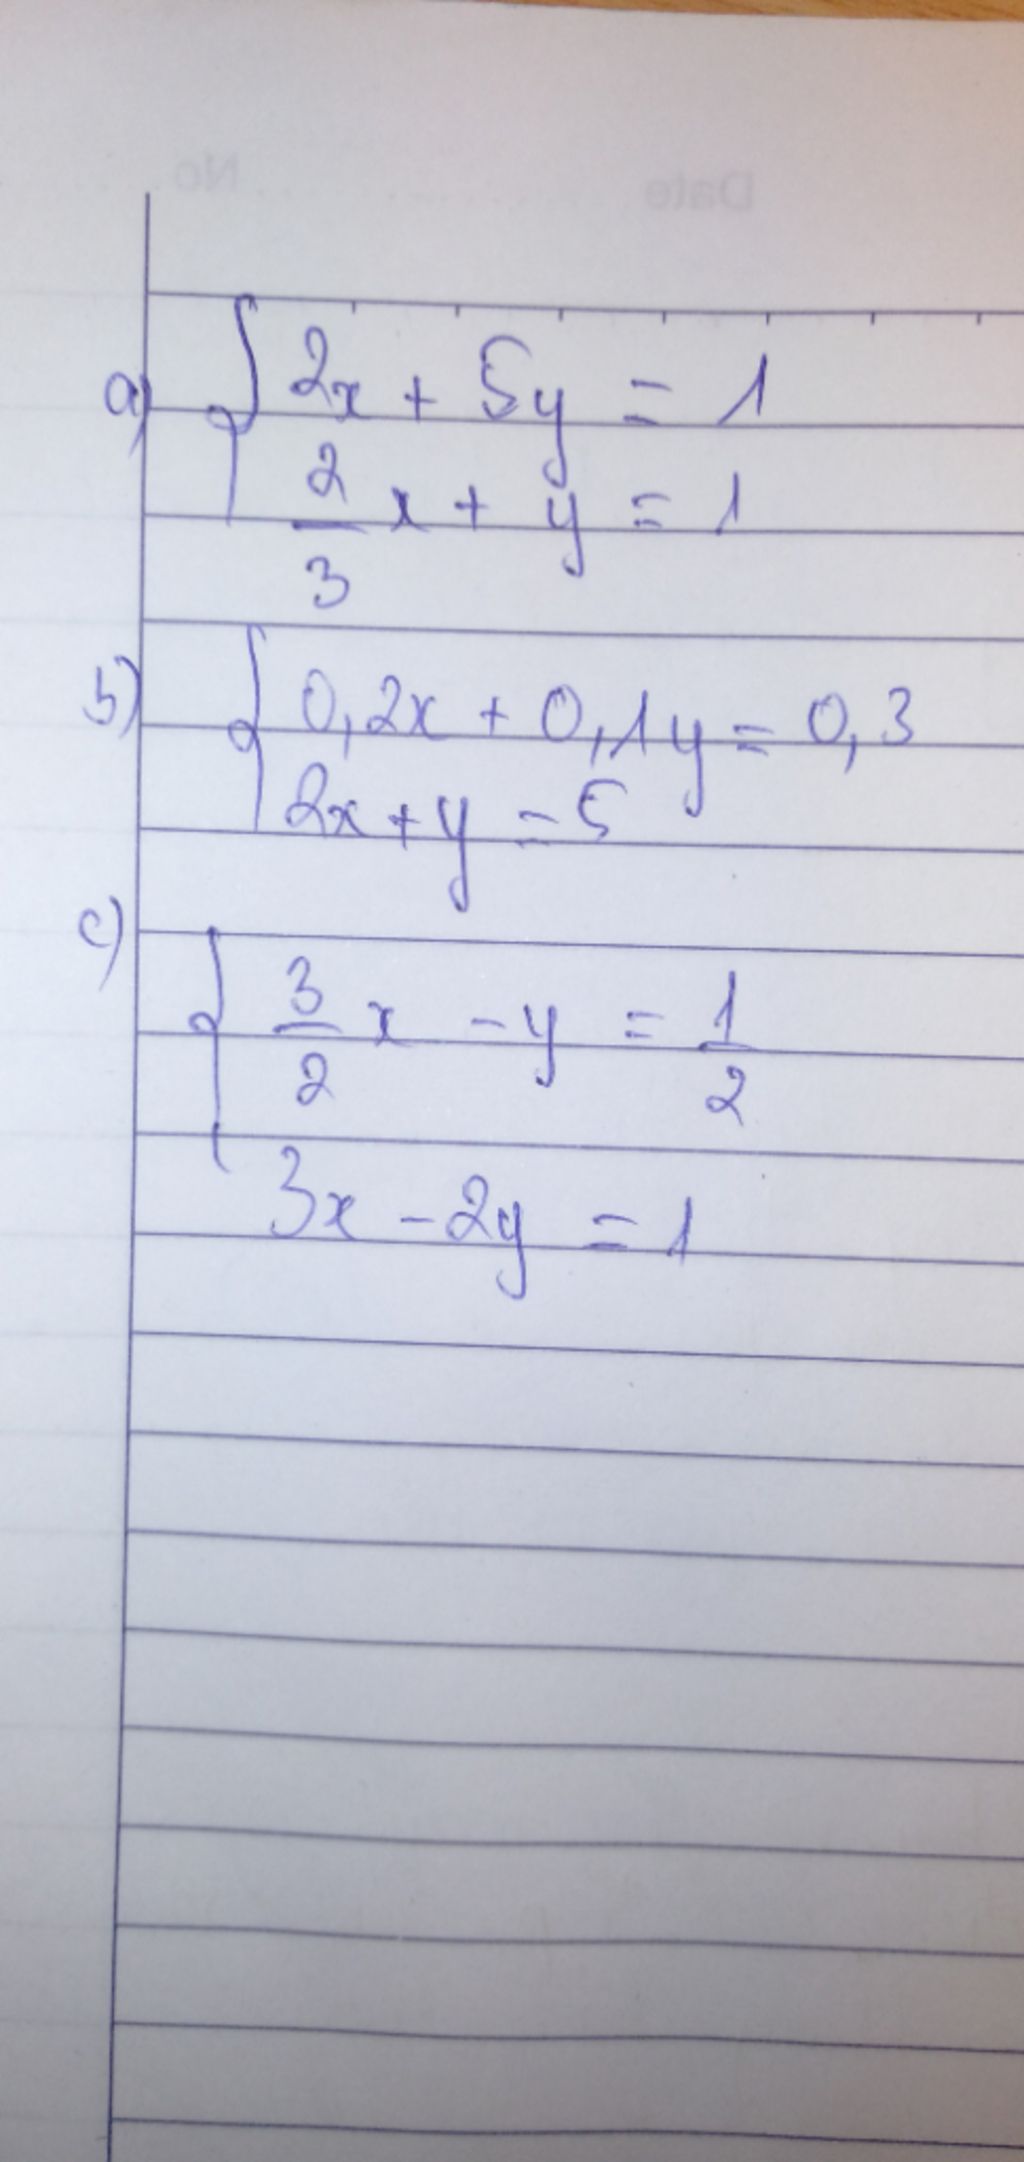 No Date
a) { 2x + 5y = 1
2/3 x + y = 1
b) { 0,2x + 0,1y = 0,3
2x + y = 5
c) { 3/2 x - y = 1/2
3x - 2y = 1